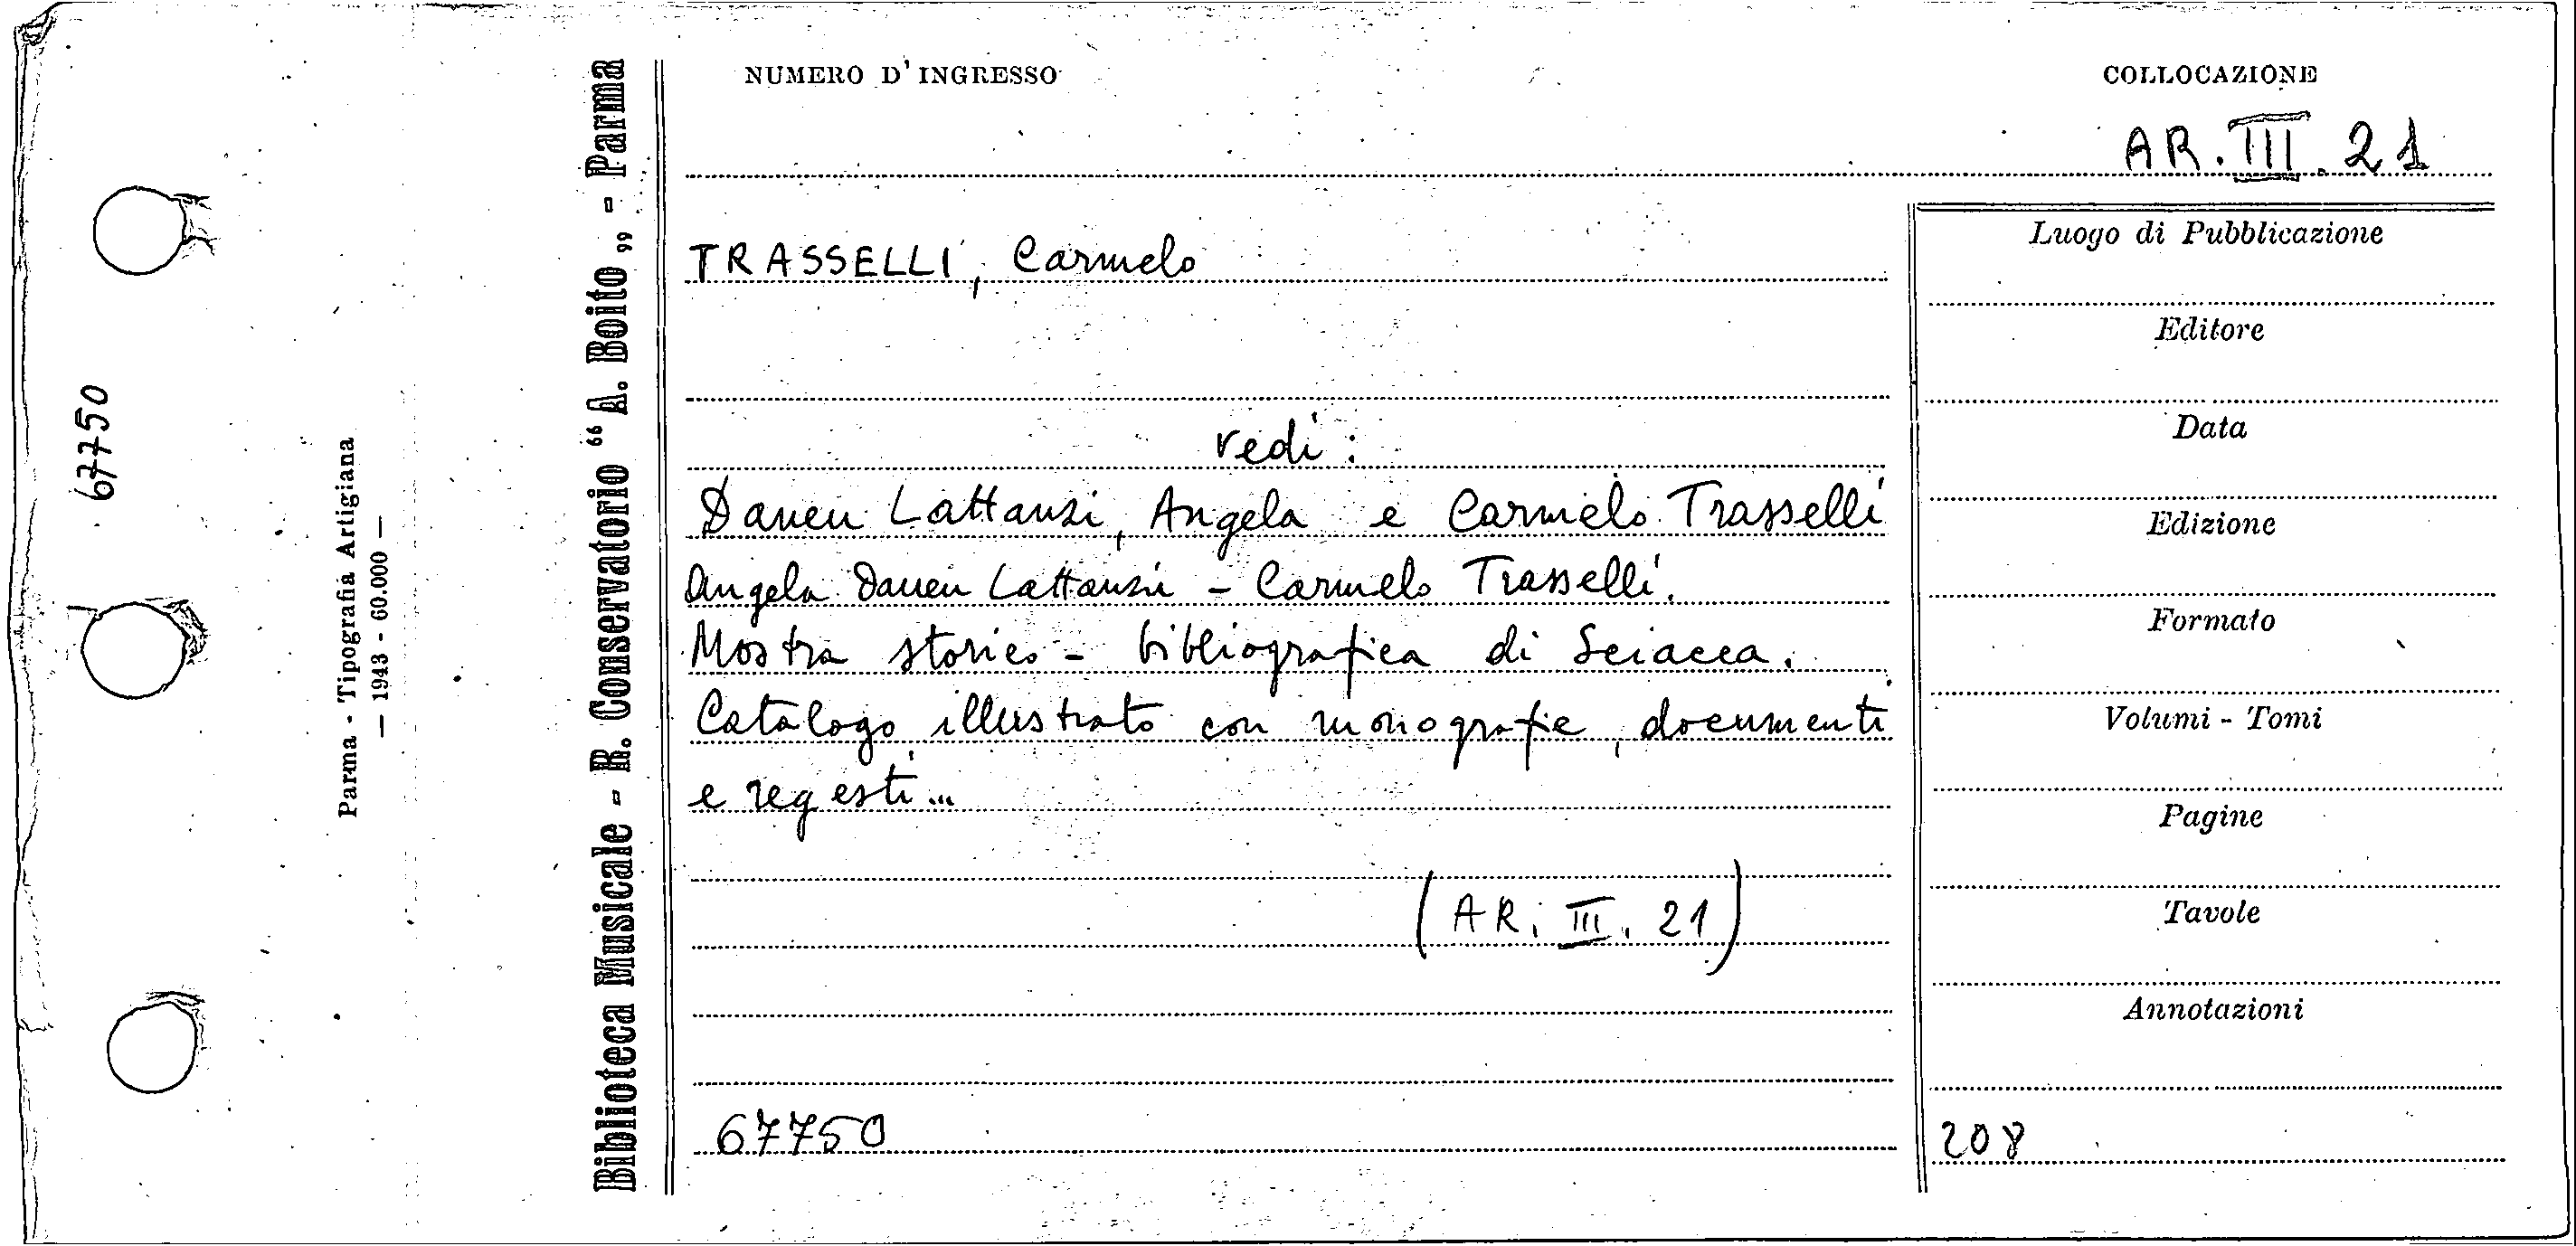 67750
Parma - Tipografia Artigiana
— 1943 - 60.000 —
Biblioteca Musicale - R. Conservatorio “A. Boito„ - Parma
NUMERO D'INGRESSO
COLLOCAZIONE
AR.III.21
TRASSELLI, Carmelo
vedi:
Daneu Lattanzi, Angela e Carmelo Trasselli
Angela Daneu Lattanzi - Carmelo Trasselli.
Mostra storico - bibliografica di Sciacca.
Catalogo illustrato con monografie, documenti
e regesti...
(AR. III. 21)
67750
Luogo di Pubblicazione
Editore
Data
Edizione
Formato
Volumi - Tomi
Pagine
Tavole
Annotazioni
208